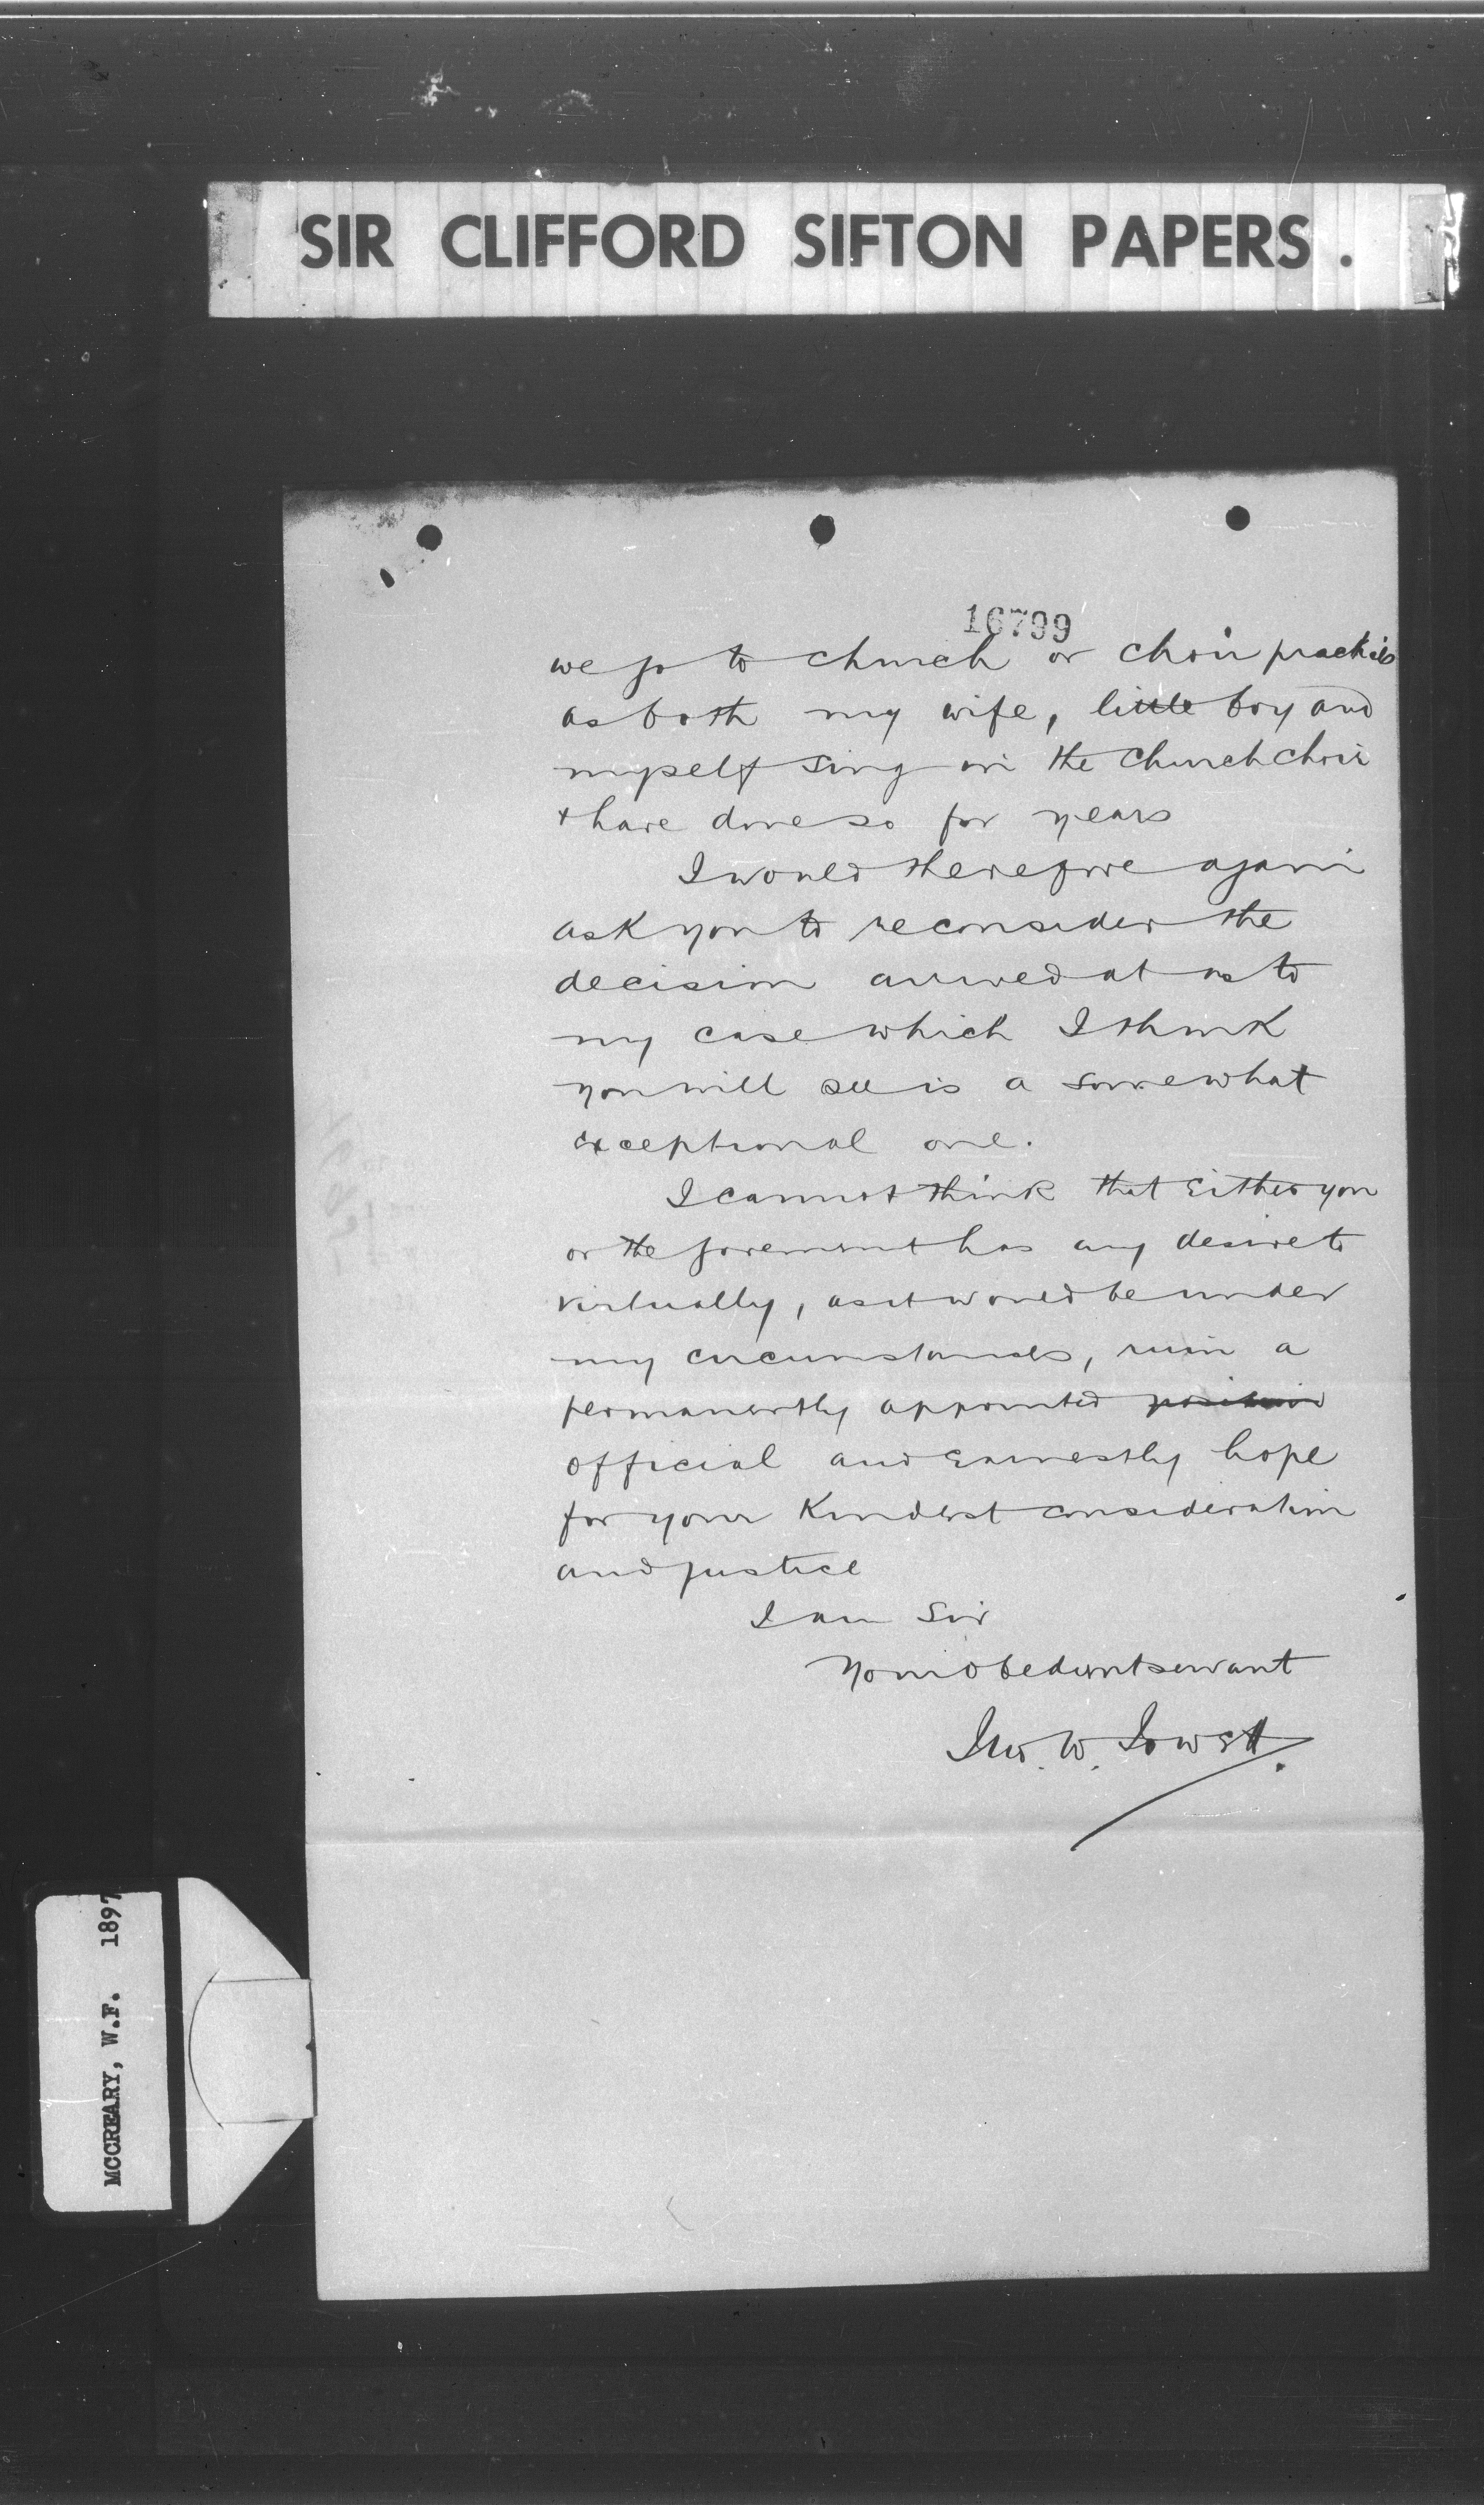 SIR CLIFFORD SIFTON PAPERS.
16799
we go to church or choir practices
as both my wife, little boy and
myself sing in the church choir
+ have done so for years
I would therefore again
ask you to reconsider the
decision arrived at as to
my case which I think
you will see is a somewhat
exceptional one.
I cannot think that either you
or the government has any desire to
virtually, as it would be under
my circumstances, ruin a
permanently appointed position
official and earnestly hope
for your kindest consideration
and justice
I am Sir
Your obedient servant
Jno. W. Jowett.
MCCREARY, W.F. 1897